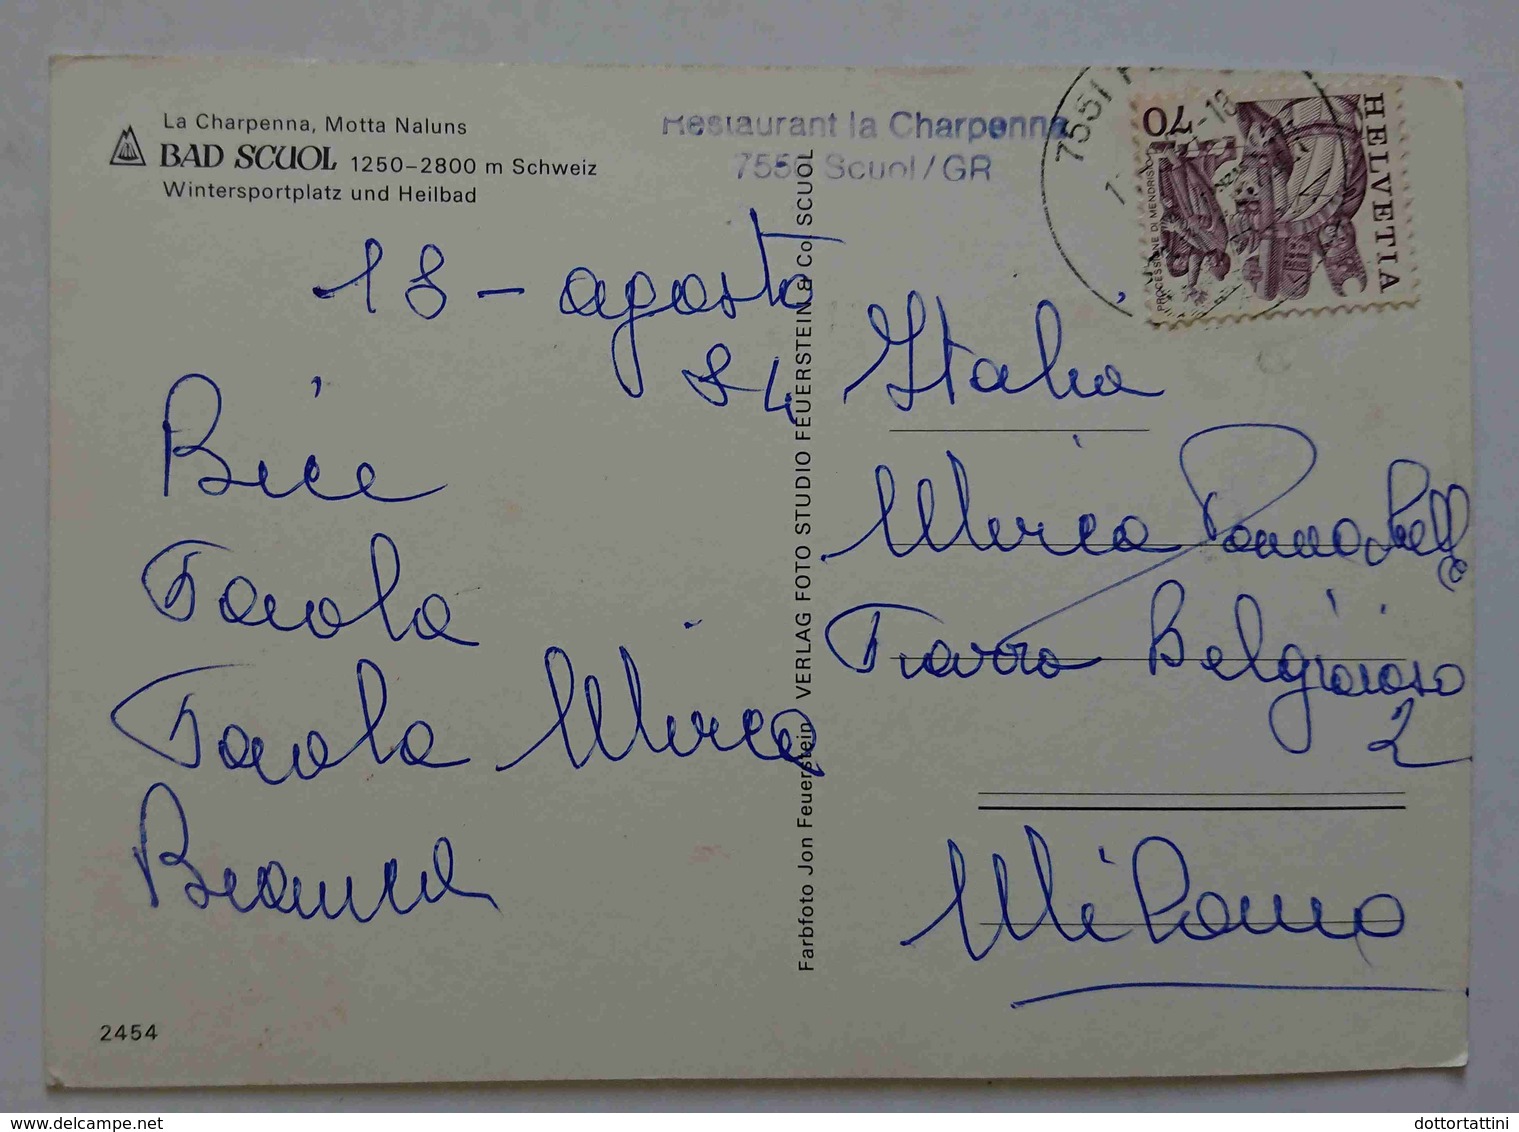 La Charpenna, Motta Naluns
BAD SCUOL 1250–2800 m Schweiz
Wintersportplatz und Heilbad
Restaurant la Charpenna
7550 Scuol/GR
7551
HELVETIA
70
PROCESSIONE DI MENDRISIO
18 - agosto
84
Bice
Paola
Paola Mirca
Bianca
2454
Farbfoto Jon Feuerstein VERLAG FOTO STUDIO FEUERSTEIN & Co. SCUOL
Italia
Mirca
Piazza Belgioioso
2
Milano
dottortattini